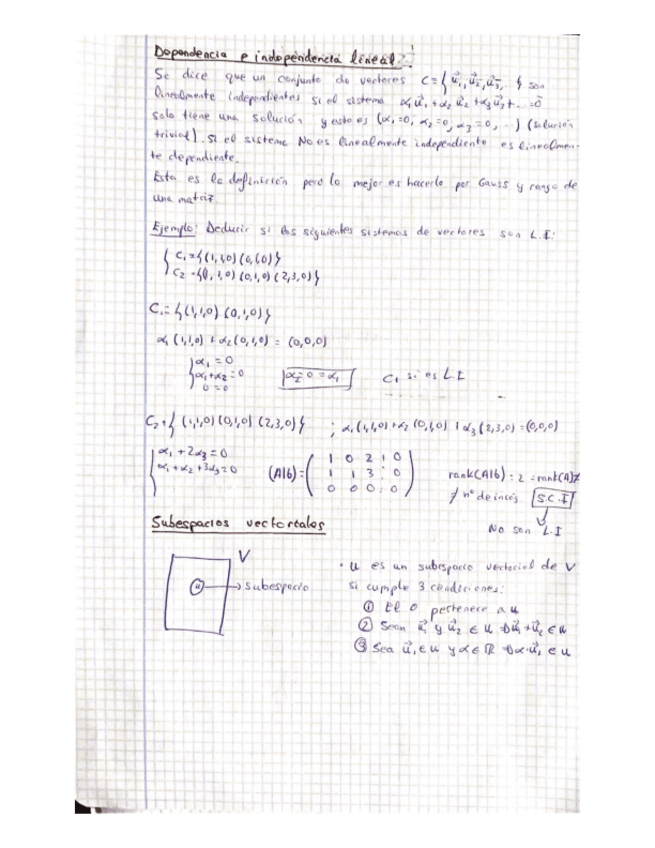 Dependencia e independencia lineal:
Se dice que un conjunto de vectores C = { u⃗₁, u⃗₂, u⃗₃, .. } son
linealmente independientes si el sistema α₁u⃗₁ + α₂u⃗₂ + α₃u⃗₃ + ... = 0⃗
solo tiene una solución y esta es (α₁=0, α₂=0, α₃=0, ...) (solución
trivial). Si el sistema No es linealmente independiente es linealmen-
te dependiente.
Esta es la definición pero lo mejor es hacerlo por Gauss y rango de
una matriz
Ejemplo: Deducir si los siguientes sistemas de vectores son L.I:
{ C₁ = {(1,1,0) (0,1,0)}
C₂ = {(1,1,0) (0,1,0) (2,3,0)}
C₁ = {(1,1,0) (0,1,0)}
α₁(1,1,0) + α₂(0,1,0) = (0,0,0)
{ α₁ = 0
α₁+α₂ = 0
0 = 0
α₂ = 0 = α₁
C₁ si es L.I
C₂ = { (1,1,0) (0,1,0) (2,3,0) } ; α₁(1,1,0) + α₂(0,1,0) + α₃(2,3,0) = (0,0,0)
{ α₁ + 2α₃ = 0
α₁ + α₂ + 3α₃ = 0
(A|b) = ( 1 0 2 ¦ 0
1 1 3 ¦ 0
0 0 0 ¦ 0 )
rank(A|b) = 2 = rank(A) ≠
≠ nº de incós S.C.I
No son L.I
Subespacios vectoriales
V
u → subespacio
· U es un subespacio vectorial de V
si cumple 3 condiciones:
① El 0 pertenece a U
② Sean u⃗₁ y u⃗₂ ∈ U ⇒ u⃗₁ + u⃗₂ ∈ U
③ Sea u⃗₁ ∈ U y α ∈ ℝ ⇒ α·u⃗₁ ∈ U